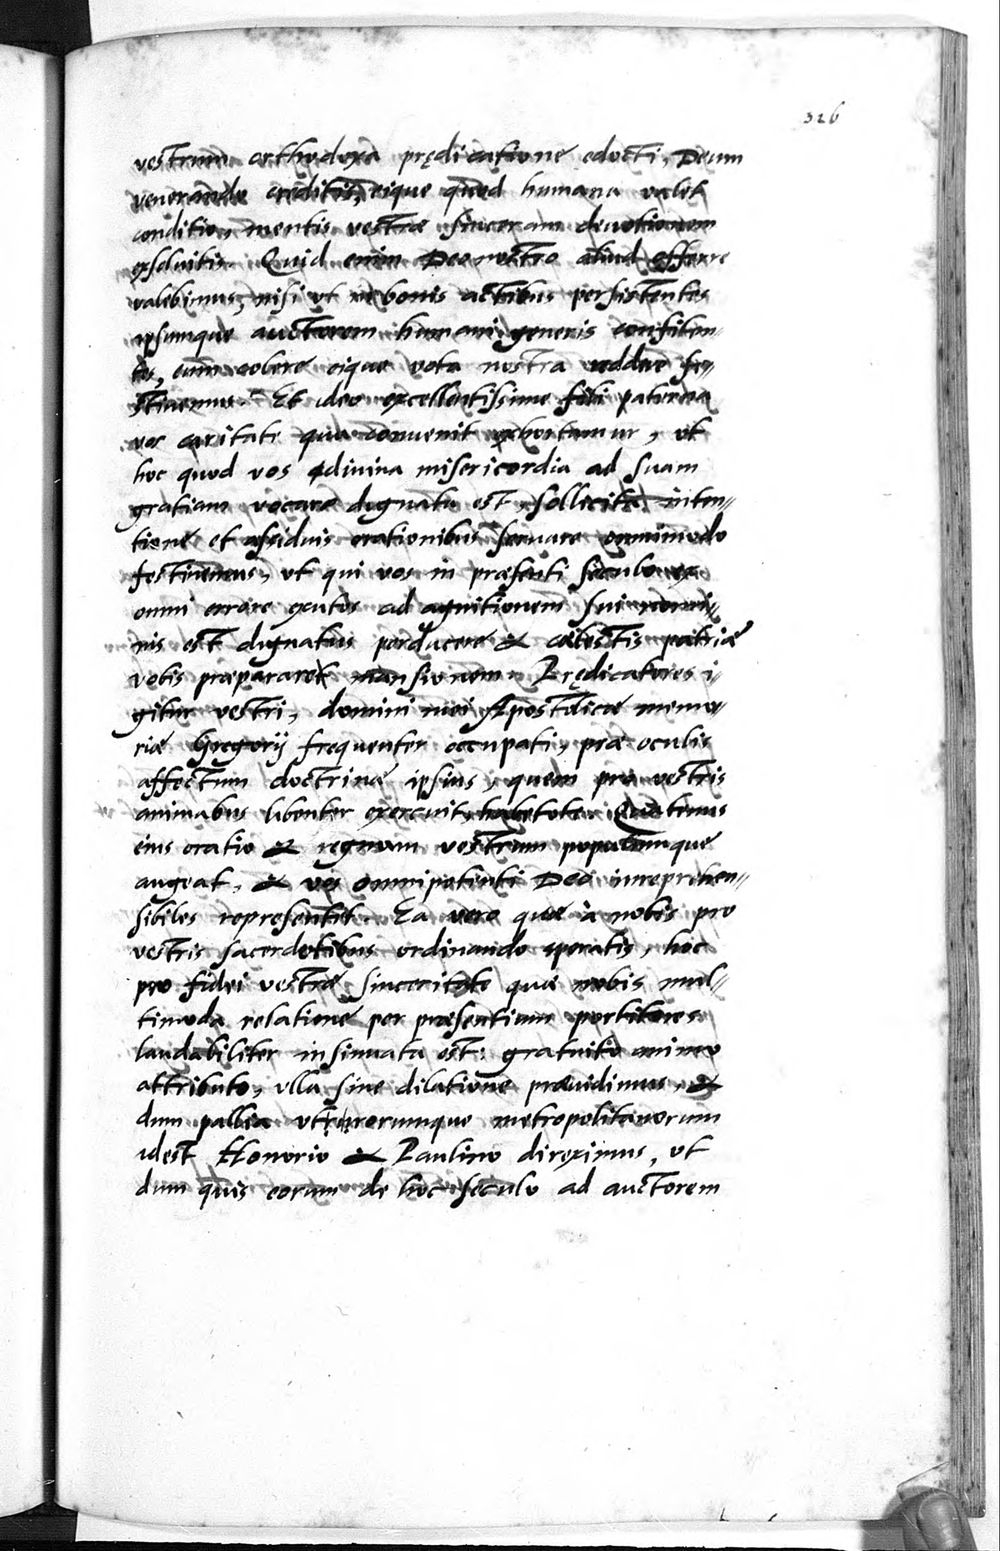 326
vestrum orthodoxa prędicatione edocti, Deum
venerando creditis, eique quod humana valet
conditio, mentis vestræ sinceram devotionem
exsolvitis. Quid enim Deo nostro aliud offerre
valebimus, nisi ut in bonis actibus persistentes
ipsumque auctorem humani generis confiten=
tes, eum colere eique vota nostra reddere fe=
stinemus. Et ideo excellentissime fili paterna
vos caritate qua convenit exhortamur, ut
hoc quod vos divina misericordia ad suam
gratiam vocare dignata est, sollicita inten=
tione et assiduis orationibus servare omnimodo
festinemus, ut qui vos in præsenti seculo ex
omni errore exutos ad agnitionem sui nomi=
nis est dignatus perducere & cælestis patriæ
vobis præpararet mansionem. Prędicatores i=
gitur vestri, domini mei Apostolicæ memo=
riæ Gregorij frequenter occupati, præ oculis
affectum doctrinæ ipsius, quem pro vestris
animabus libenter exercuit, habetote. Quatenus
eius oratio & regnum vestrum populumque
augeat, & vos omnipotenti Deo inreprehen=
sibiles repręsentet. Ea vero quæ à nobis pro
vestris sacerdotibus ordinando speratis, hoc
pro fidei vestræ sinceritate quæ nobis mul=
timoda relatione per præsentium portitores
laudabiliter insinuata est: gratuito animo
attributo, ulla sine dilatione prævidimus, &
dum pallia utrorumque metropolitanorum
idest Honorio & Paulino direximus, ut
dum quis eorum de hoc seculo ad auctorem